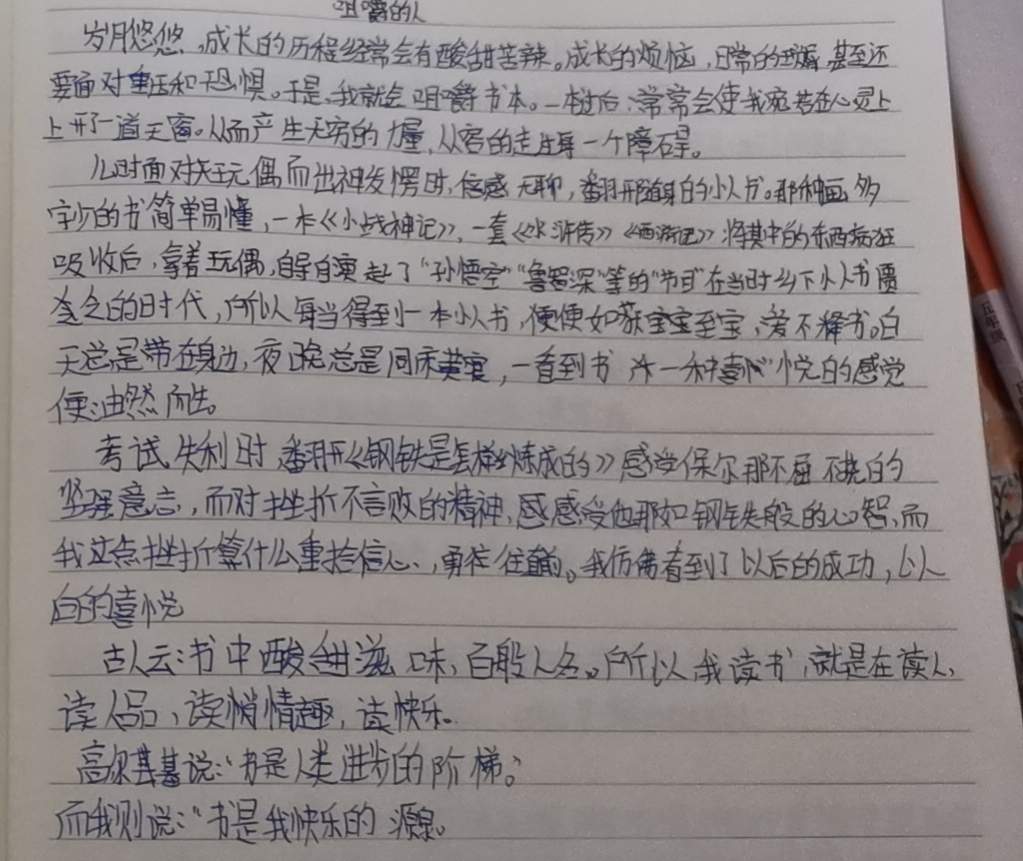 咀嚼的人
岁月悠悠,成长的历程经常会有酸甜苦辣。成长的烦恼,日常的琐屑,甚至还
要面对重压和恐惧。于是,我就会咀嚼书本。一本过后,常常会使我宛若在心灵上
上开了一道天窗。从而产生无穷的力量,从容的走过每一个障碍。
儿时面对玩偶而出神发愣时,倍感无聊,翻开随身的小人书。那种画多
字少的书简单易懂,一本《小战神记》,一套《水浒传》《西游记》将其中的东西疯狂
吸收后,拿着玩偶,自导自演起了"孙悟空""鲁智深"等的"节目"在当时乡下小人书匮
乏的时代,所以每当得到一本小人书,便便如获宝宝至宝,爱不释书。白
天总是带在身边,夜晚总是同床共寝,一直到书 一种喜悦的感觉
便油然而生。
考试失利时,翻开《钢铁是怎样炼成的》感受保尔那不屈不挠的
坚强意志,而对挫折不言败的精神,感感受他那如钢铁般的心智,而
我这点挫折算什么重拾信心,勇往往前。我仿佛看到了以后的成功,以
后的喜悦
古人云:书中酸甜滋味,百般人各。所以,我读书,就是在读人,
读人品,读情趣,读快乐。
高尔基说:"书是人类进步的阶梯。
而我则说:"书是我快乐的源泉。